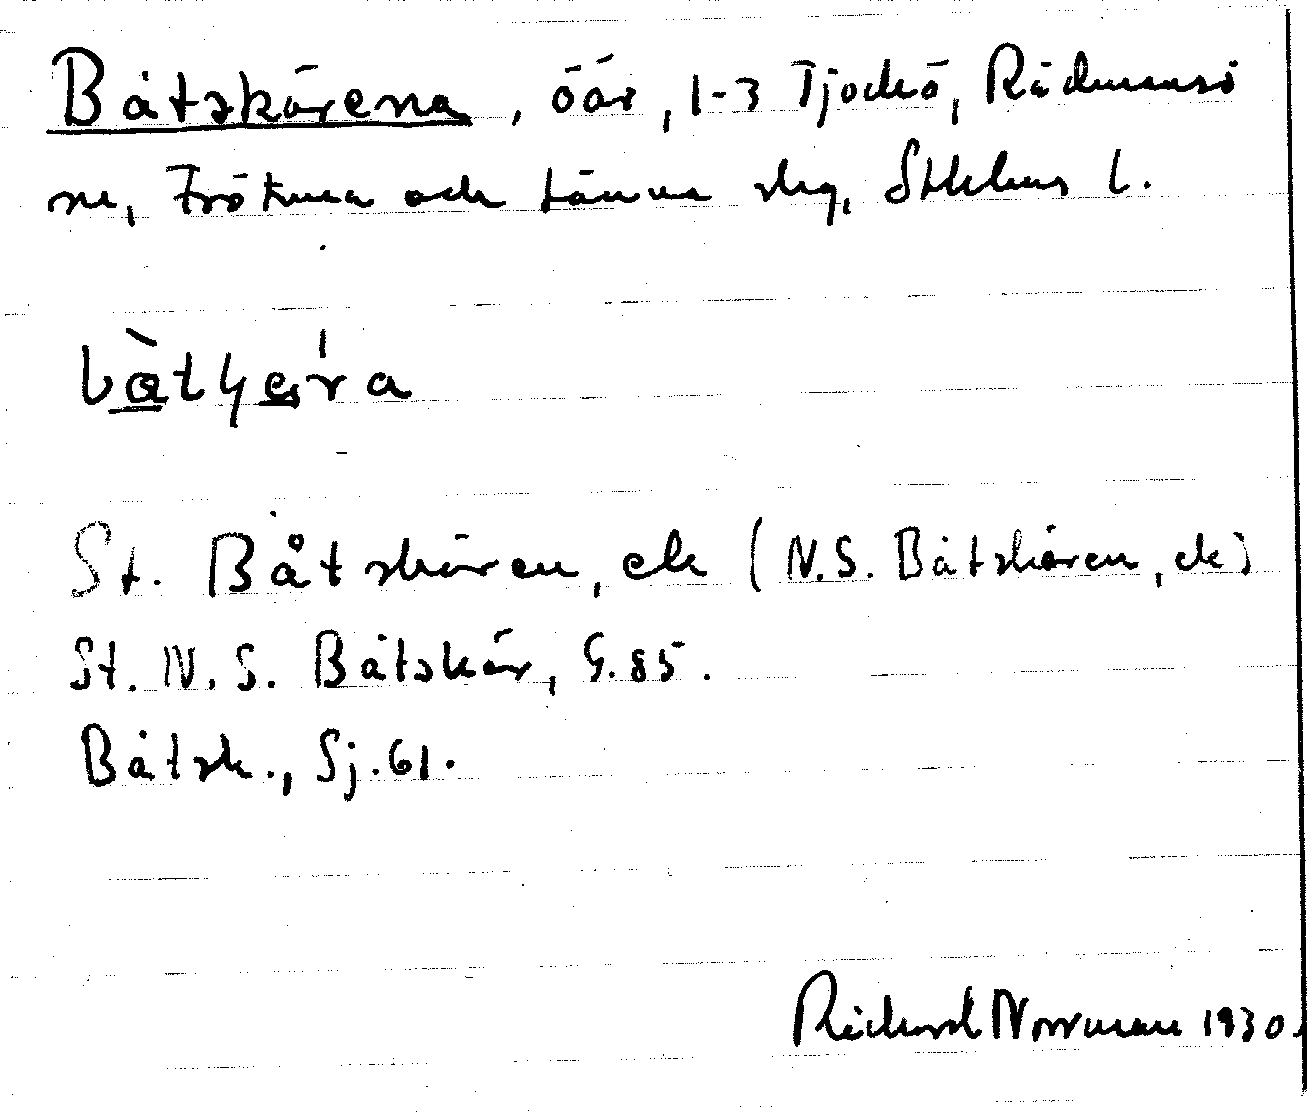 Båtskärena, öar, 1-3 Tjockö, Rådmansö
sn, Frötuna och Länna skg, Sthlms l.
Båtskären, ek (N.S. Båtskären, ek)
St. N.S. Båtskär, G.85.
Båtsk., Sj.61.
Richard Norrman 1930.